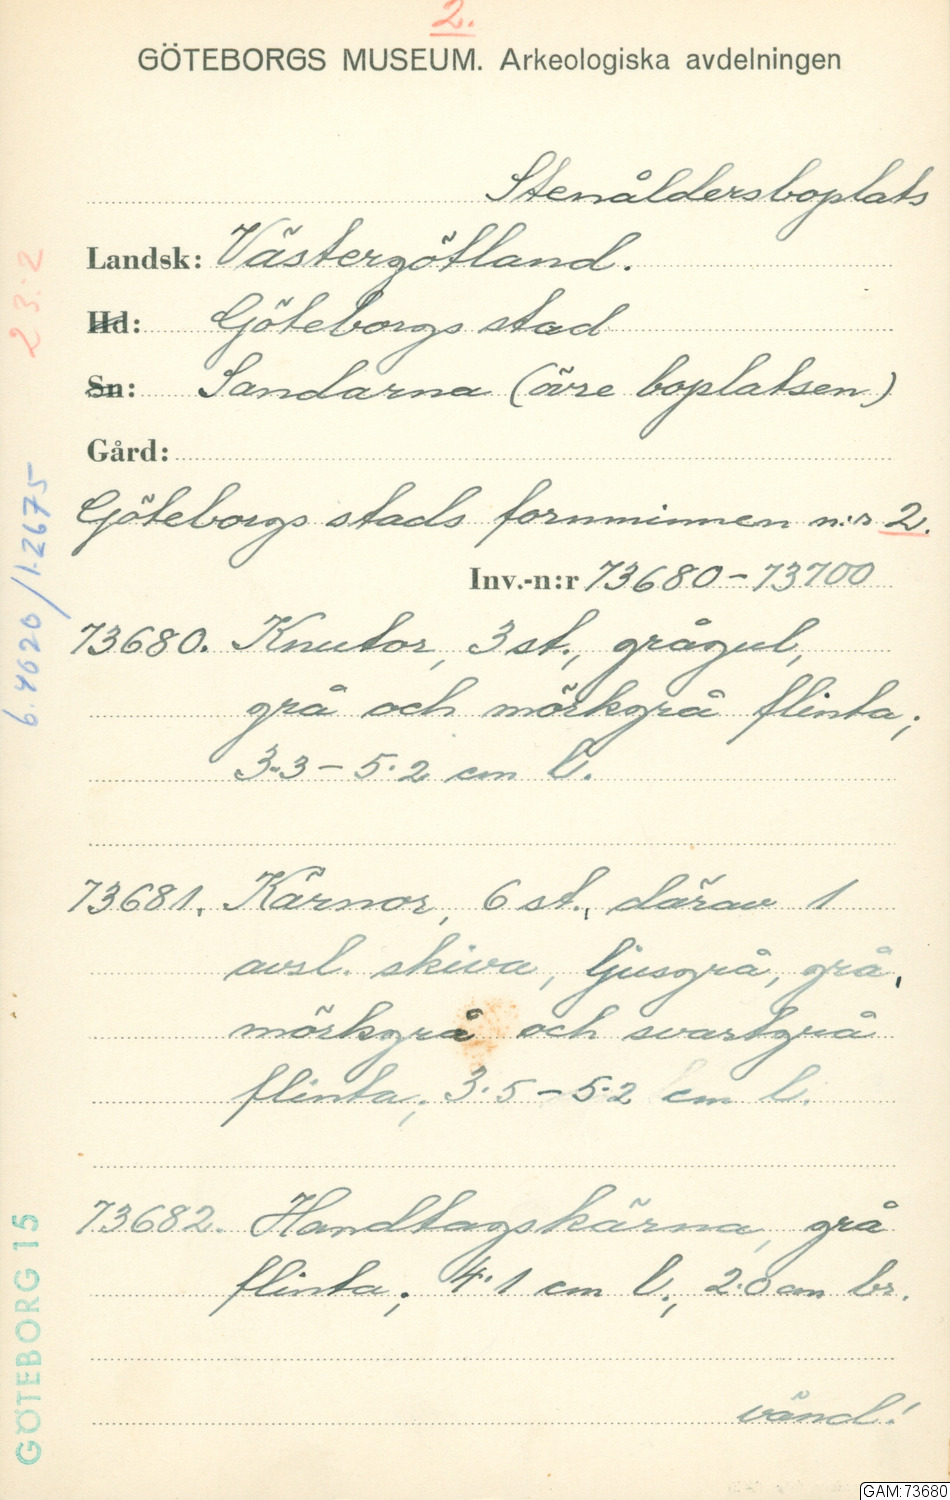 2.
GÖTEBORGS MUSEUM. Arkeologiska avdelningen
Stenåldersboplats
Landsk: Västergötland.
Hd: Göteborgs stad
Sn: Sandarna (övre boplatsen)
Gård:
Göteborgs stads fornminnen n:r 2.
Inv.-n:r 73680-73700
73680. Knutor, 3 st., grågul,
grå och mörkgrå flinta;
3.3-5.2 cm l.
73681. Kärnor, 6 st., därav 1
avsl. skiva, ljusgrå, grå,
mörkgrå och svartgrå
flinta; 3.5-5.2 cm l.
73682. Handtagskärna, grå
flinta; 4.1 cm l., 2.0 cm br.
vänd!
23:2
6.4620/1-2675
GÖTEBORG 15
GAM:73680